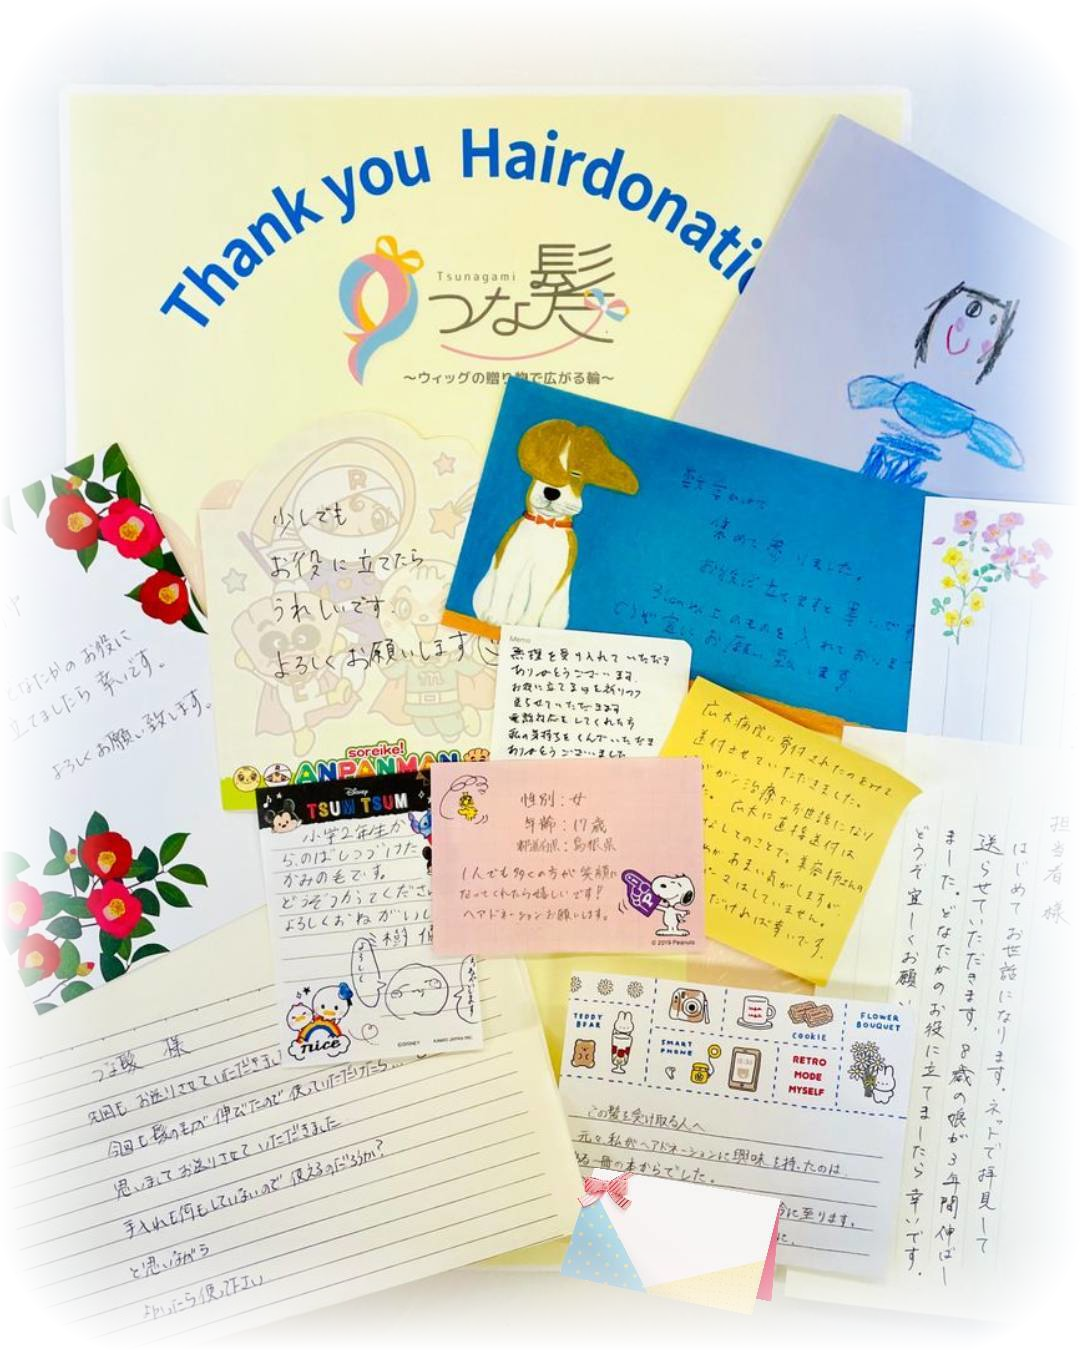 Thank you Hairdonati
Tsunagami
つな髪
〜ウィッグの贈り物で広がる輪〜
少しでも
お役に立てたら
うれしいです。
よろしくお願いします
soreike!
ANPANMAN
集めて参りました。
お役に立てますと幸いです
31cm以上のものを入れており
どうぞ宜しくお願い致します。
なたかのお役に
立てましたら幸いです。
よろしくお願い致します。
Memo
無理を受け入れていただき
ありがとうございます
お役に立てる事を祈りつつ
送らせていただきます
電話対応をしてくれた方
私の気持ちをくんでいただき
ありがとうございました
広大病院に寄付されたのをみて
送付させていただきました。
ガン治療でお世話になり
た。広大に直接送付は
なしてのことで。美容師さんの
があまい気がしますが、
パーマはしていません。
だければ幸いです
Disney
TSUM TSUM
小学2年生か
ら、のばしつづけた
かみの毛です。
どうぞつかってくださ
よろしくおねがいし
よろしく
nice
©DISNEY
性別:女
年齢:17歳
都道府県:島根県
1人でも多くの方が笑顔に
なってくれたら嬉しいです!
ヘアドネーションお願いします。
P
© 2019 Peanuts
担当者様
はじめてお世話になります。ネットで拝見して
送らせていただきます。8歳の娘が3年間伸ばし
ました。どなたかのお役に立てましたら幸いです。
どうぞ宜しくお願い
つな髪 様
先回も お送りさせていただきまし
今回も髪の毛が伸びたので使っていただけたら...
思いましてお送りさせていただきました
手入れも何もしていないので使えるのだろうか?
と思いながら
よかったら使って下さい
TEDDY BEAR
COOKIE
FLOWER BOUQUET
SMART PHONE
RETRO MODE MYSELF
この髪を受け取る人へ
元々、私がヘアドネーションに興味を持ったのは、
一冊の本からでした。
今に至ります。